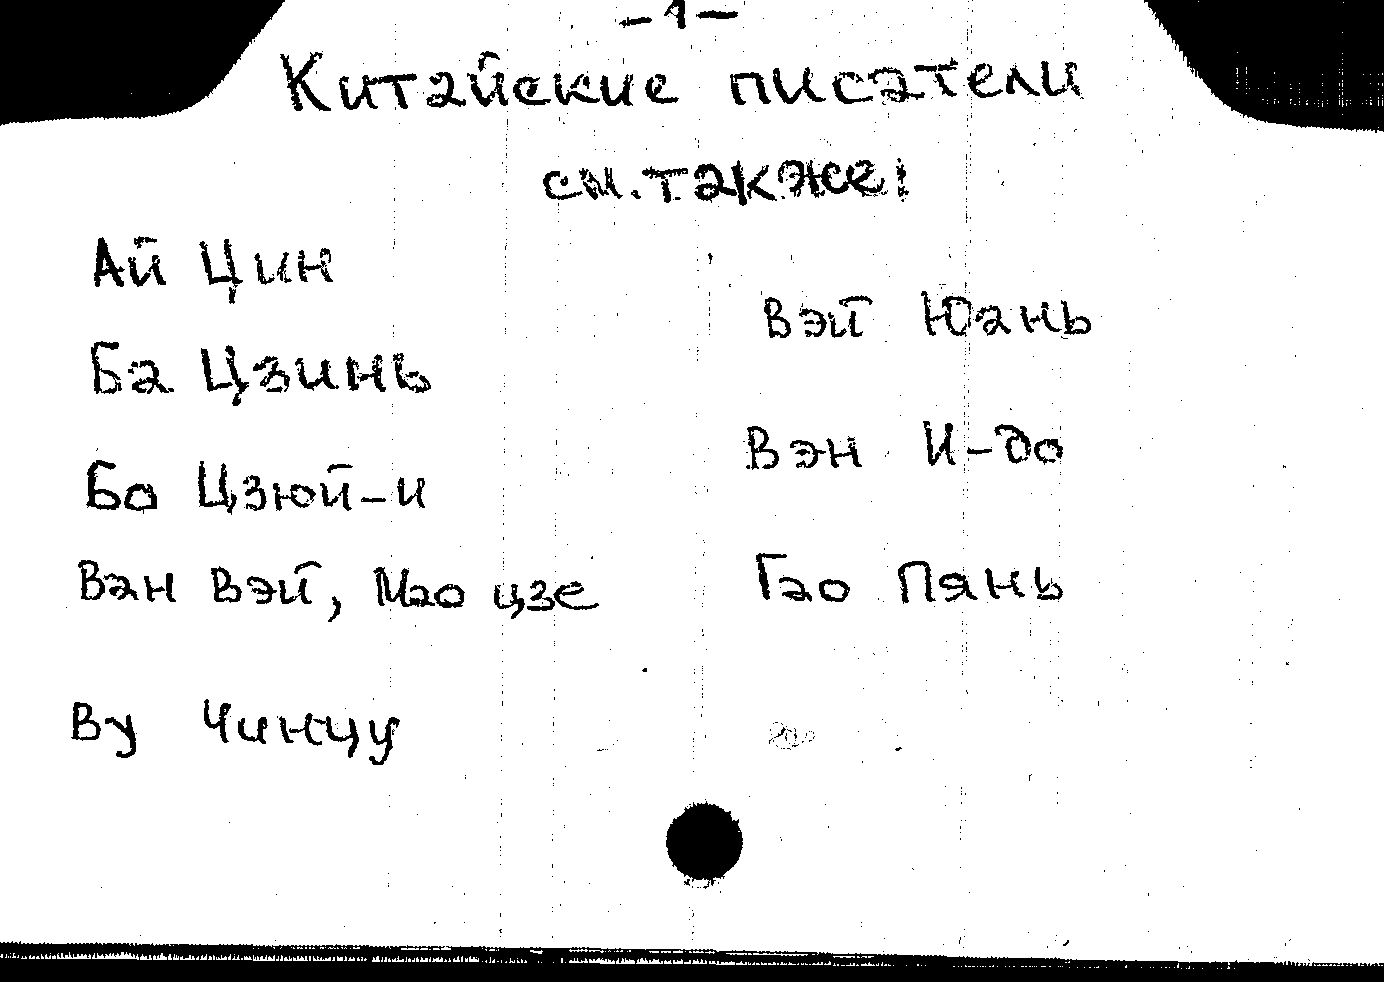 -1-
Китайские писатели
см. также:
Ай Цин
Ба Цзинь
Бо Цзюй-и
Ван Вэй, Мао цзе
Ву Чинцу
Вэй Юань
Вэн И-до
Гао Пянь